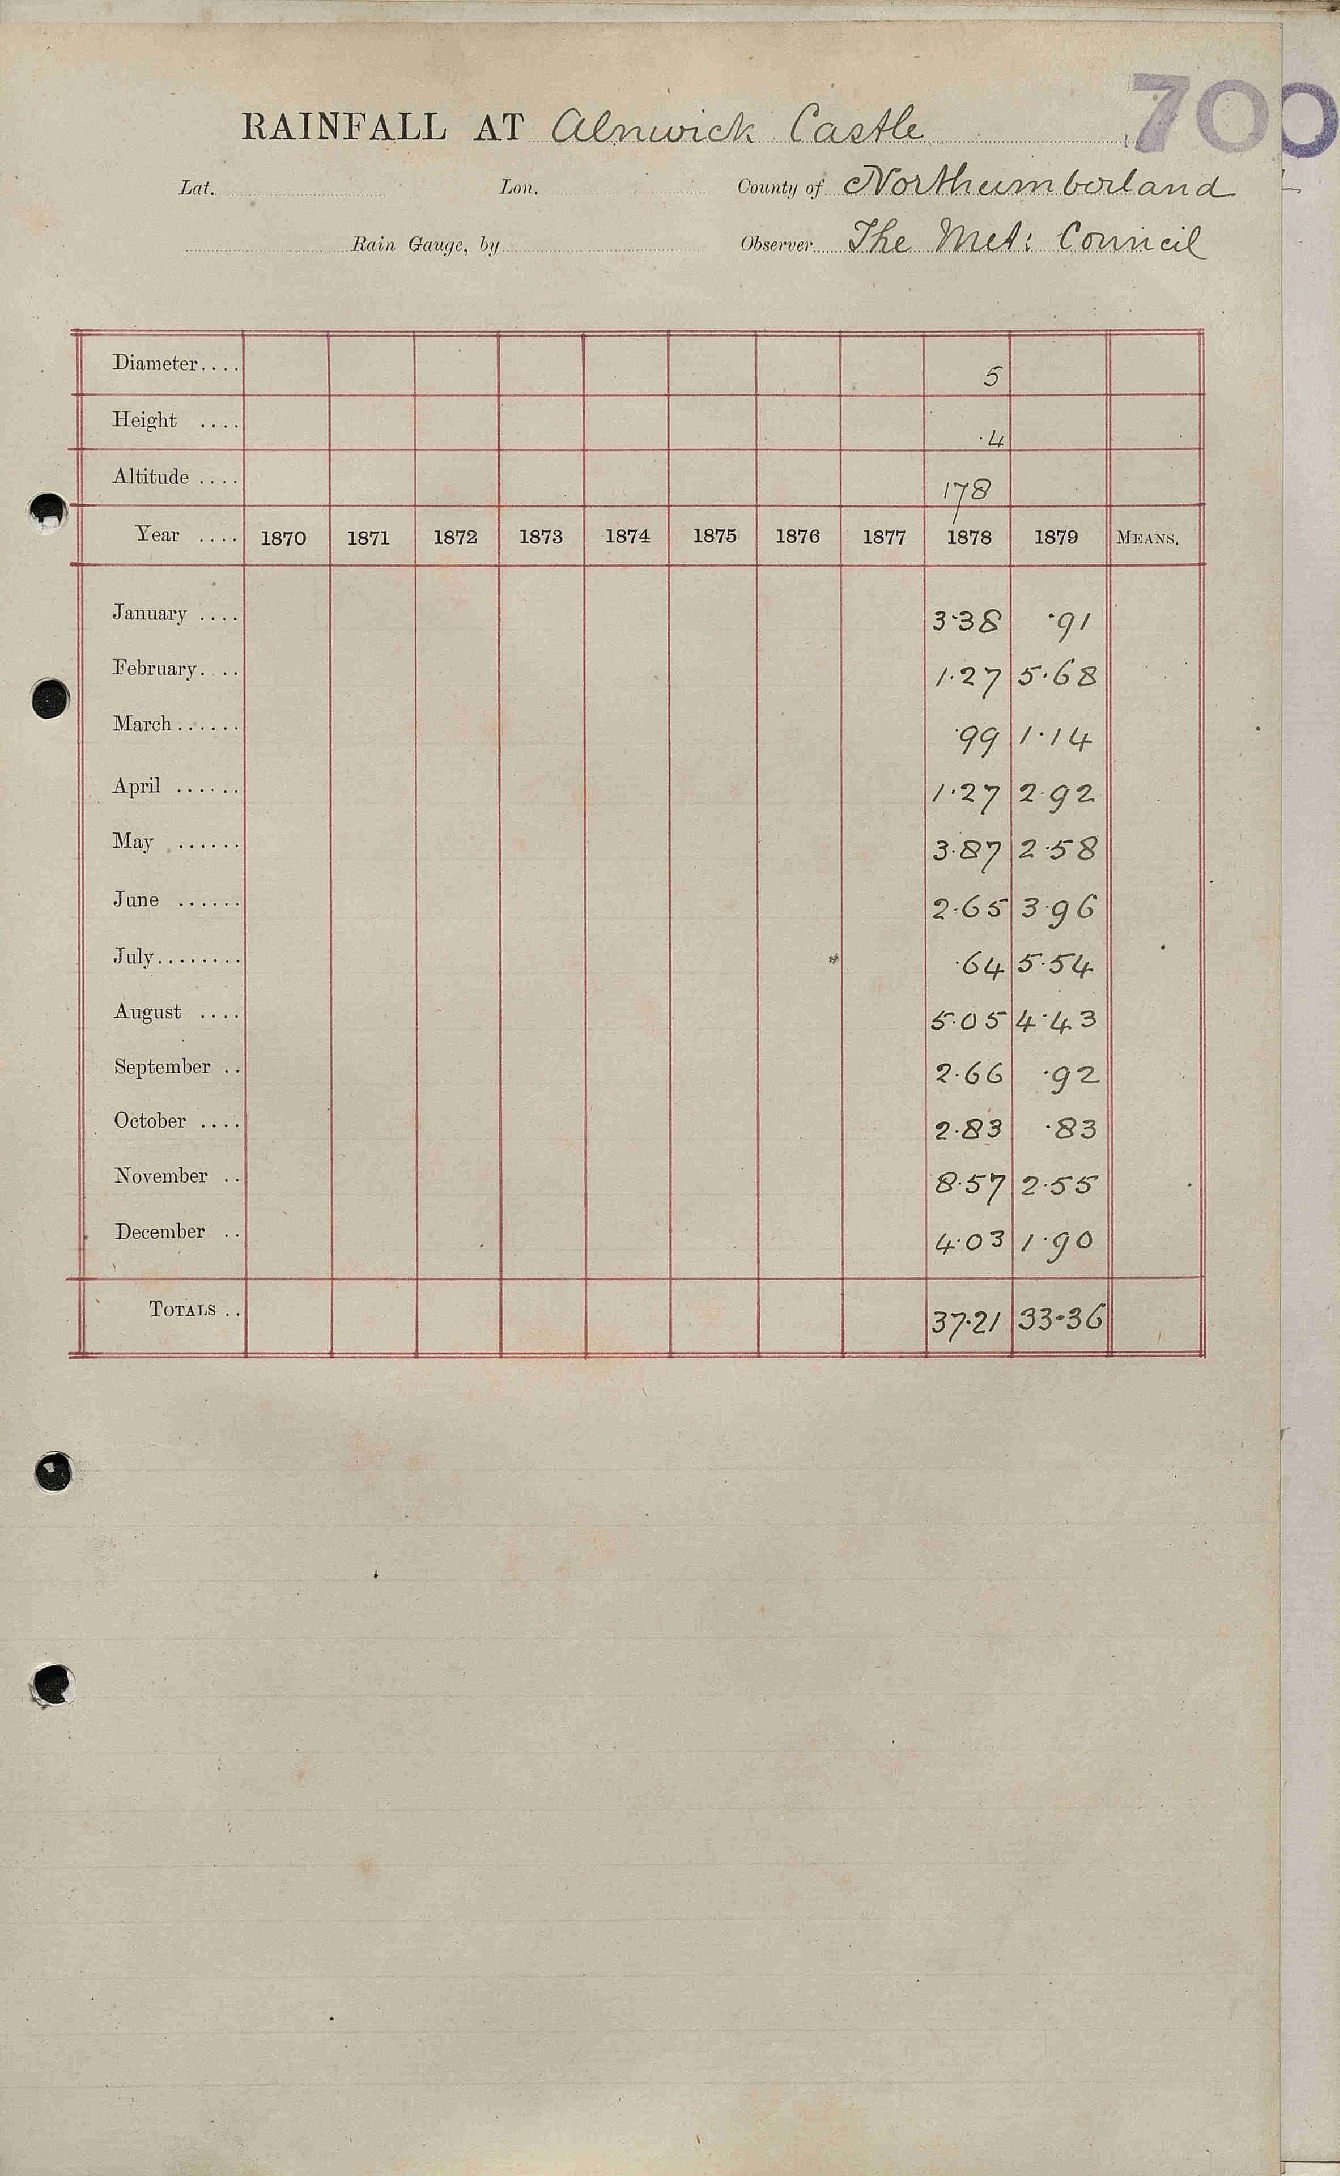 700
RAINFALL AT Alnwick Castle
Lat. Lon. County of Northumberland
Rain Gauge, by Observer The Met: Council
Diameter.... 5
Height .... ·4
Altitude .... 178
Year .... 1870 1871 1872 1873 1874 1875 1876 1877 1878 1879 MEANS.
January .... 3·38 ·91
February.... 1·27 5·68
March...... ·99 1·14
April ...... 1·27 2·92
May ...... 3·87 2·58
June ...... 2·65 3·96
July........ ·64 5·54
August .... 5·05 4·43
September .. 2·66 ·92
October .... 2·83 ·83
November .. 8·57 2·55
December .. 4·03 1·90
TOTALS .. 37·21 33·36